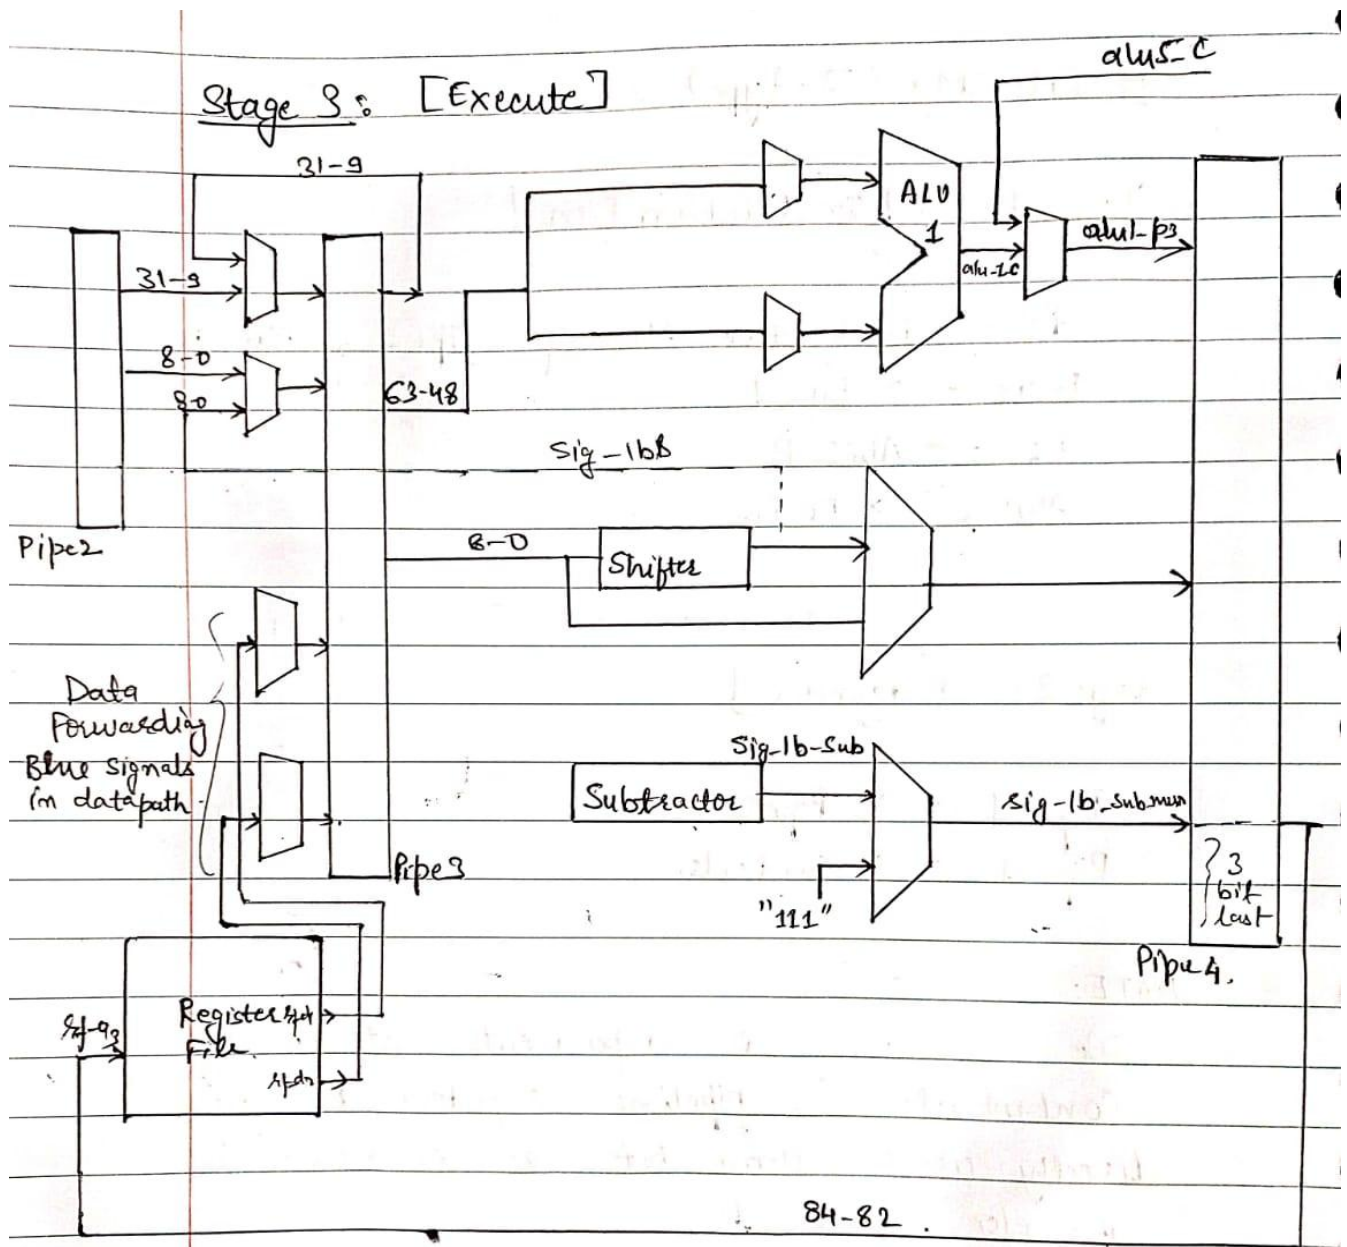 alu5_C
Stage 3: [Execute]
31-9
ALU
1
alu1-p3
alu-1c
31-9
8-0
8-0
63-48
Sig-lbs
Pipe2
8-0
Shifter
Data
Forwarding
Blue Signals
in datapath
Sig-lb-Sub
Subtractor
sig-lb-submux
"111"
3
bit
last
Pipe3
Pipe 4.
Register
File
rf-a3
84-82